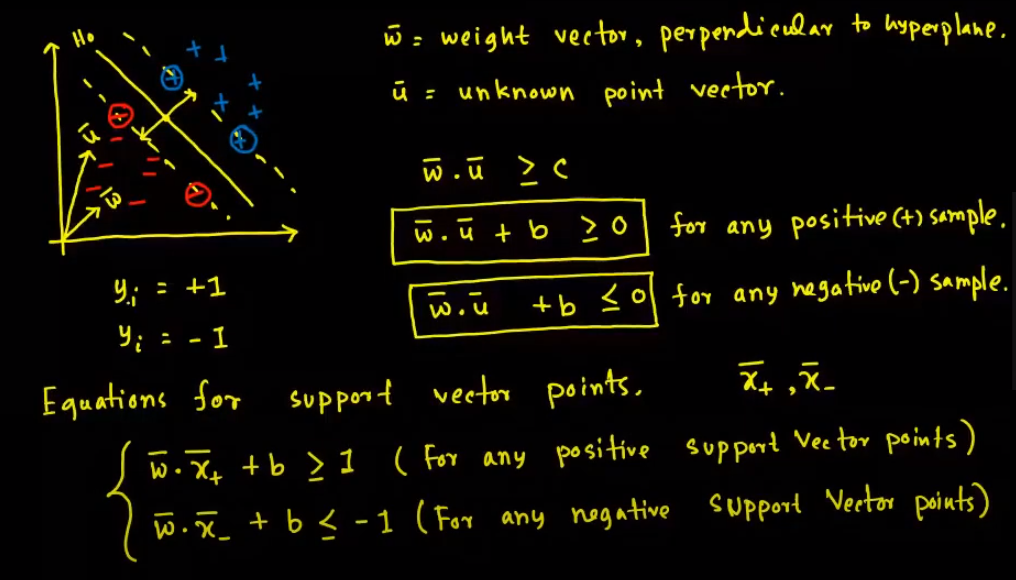 H₀
w̄ = weight vector, perpendicular to hyperplane.
ū = unknown point vector.
ū
w̄
w̄ . ū ≥ c
w̄ . ū + b ≥ 0 for any positive (+) sample.
w̄ . ū + b ≤ 0 for any negative (-) sample.
yᵢ = +1
yᵢ = -1
Equations for support vector points. x̄₊ , x̄₋
w̄ . x̄₊ + b ≥ 1 ( For any positive support vector points)
w̄ . x̄₋ + b ≤ -1 (For any negative support vector points)